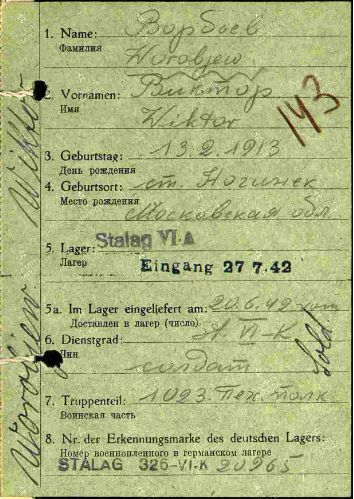 1. Name: Ворбьев
Фамилия
Worobjew
2. Vornamen: Виктор
Имя
Wiktor
143
3. Geburtstag: 13.2.1913
День рождения
4. Geburtsort: ст. Ногинск
Место рождения
Московская обл.
5. Lager: Stalag VI-A
Лагер
Eingang 27 7.42
5a. Im Lager eingeliefert am: 20.6.42
Доставлен в лагер (число)
6. Dienstgrad:
Чин
солдат
Sold
7. Truppenteil: 1023 Пех. полк
Воинская часть
8. Nr. der Erkennungsmarke des deutschen Lagers:
Номер военнопленного в германском лагере
STALAG 326-VI-K 20965
Worobjew Wiktor